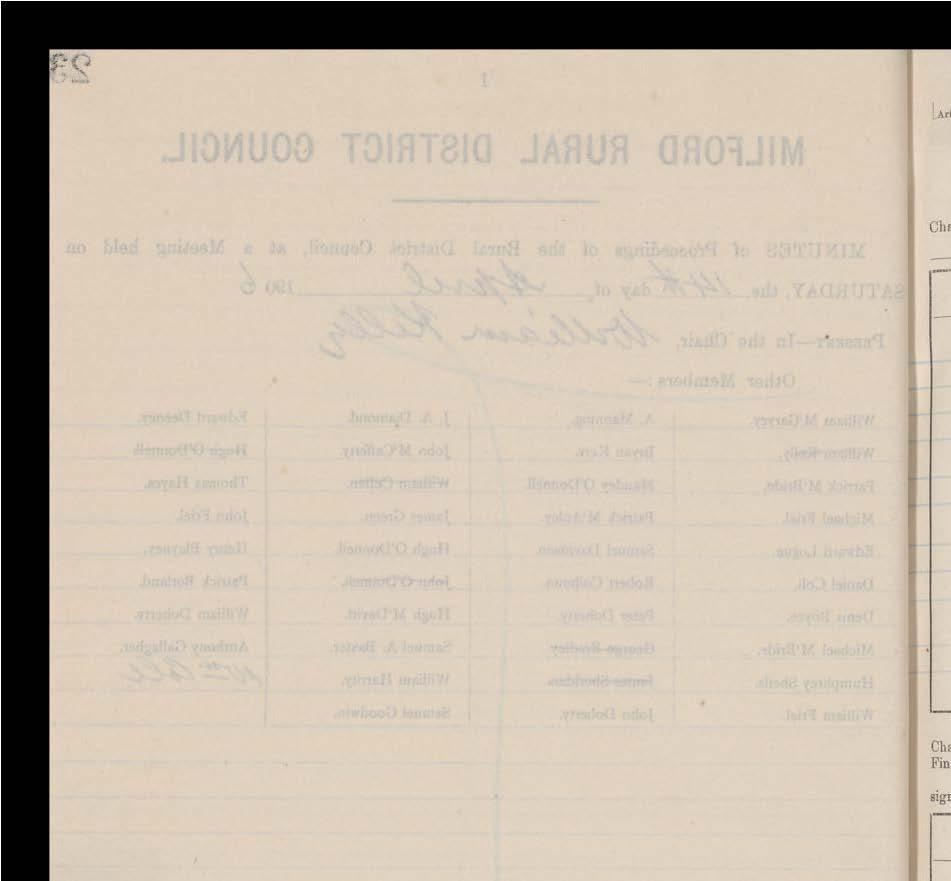 23
1
MILFORD RURAL DISTRICT COUNCIL.
MINUTES of Proceedings of the Rural District Council, at a Meeting held on
SATURDAY, the 14th day of April 190 6
PRESENT—In the Chair, William
Other Members :—
William M'Garvey. A. Manning. J. A. Diamond. Edward Deeney.
William Bryan Kerr. John M'Cafferty. Hugh O'Donnell
Patrick M'Bride. Manley O'Donnell. William Cullen. Thomas Hayes.
Michael Friel. Patrick James Green. John Friel.
Edward Logue. Samuel Davidson. Hugh O'Donnell. Henry Blayney.
Daniel Coll. Robert Calhoun. John O'Donnell. Patrick Borland.
Denis Boyce. Peter Doherty. Hugh M'Devitt. William Doherty.
Michael M'Bride. George Bradley Samuel A. Baxter. Anthony Gallagher.
Humphrey Sheils. James Sheridan. William Harrity. Wm Coll
William Friel. John Doherty. Samuel Goodwin.
Art
Cha
Cha
Fin
sign